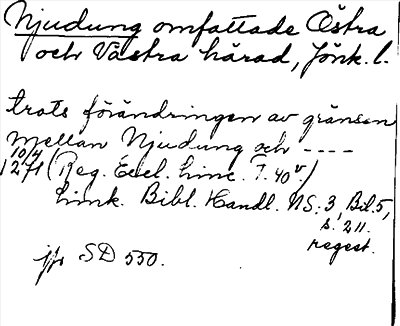 Njudung omfattade Östra
och Västra härad, Jönk. l.
trots förändringen av gränsen
mellan Njudung och ----
10/4
1271 (Reg. Eccl. Linc. T. 40 v.)
Link. Bibl. Handl. NS: 3, Bil. 5,
s. 211.
regest.
jfr SD 550.